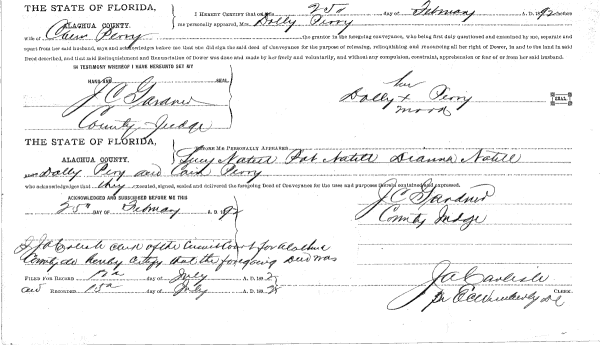 THE STATE OF FLORIDA, I HEREBY CERTIFY that on 25th day of February A. D. 1892 before
ALACHUA COUNTY. me personally appeared, Mrs. Dolly Perry
wife of Cain Perry the grantor in the foregoing conveyance, who being first duly questioned and examined by me, separate and
apart from her said husband, says and acknowledges before me that she did sign the said deed of conveyance for the purpose of releasing, relinquishing and renouncing all her right of Dower, in and to the land in said
Deed described, and that said Relinquishment and Renunciation of Dower was done and made by her freely and voluntarily, and without any compulsion, constraint, apprehension or fear of or from her said husband.
IN TESTIMONY WHEREOF I HAVE HEREUNTO SET MY
HAND AND SEAL
J C Gardner
County Judge
her
Dolly x Perry SEAL
mark
THE STATE OF FLORIDA, BEFORE ME PERSONALLY APPEARED
ALACHUA COUNTY. Lucy Natell Pat Natell Dianna Natell
Dolly Pery and Cain Perry
who acknowledges that they executed, signed, sealed and delivered the foregoing Deed of Conveyance for the uses and purposes therein contained and expressed.
ACKNOWLEDGED AND SUBSCRIBED BEFORE ME THIS
25th DAY OF February A. D. 1892
J C Gardner
County Judge
I J A Carlisle clerk of the Circuit Court for Alachua
County do hereby certify that the foregoing Deed was
FILED FOR RECORD day of July A. D. 1892
and RECORDED day of July A. D. 1892
J A Carlisle
CLERK.